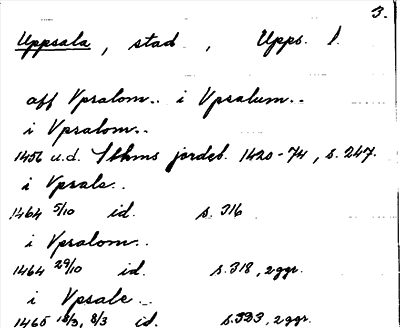 3.
Uppsala, stad, Upps. l.
aff Vpsalom.. i Vpsalum..
i Vpsalom..
1456 u.d. Sthms jordeb. 1420-74, s. 247.
i Vpsale..
1464 5/10 id. s. 316
i Vpsalom..
1464 29/10 id. s. 318, 2 ggr.
i Vpsale..
1465 18/3, 8/3 id. s. 323, 2 ggr.